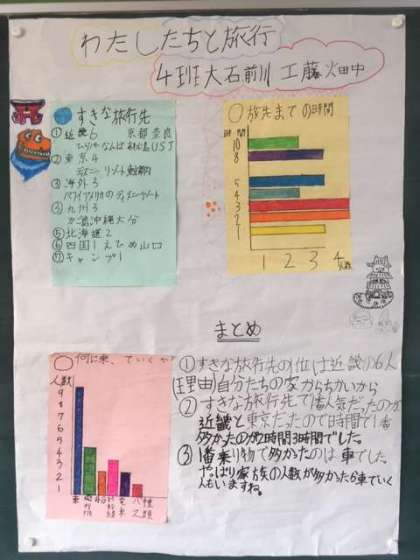 わたしたちと旅行
4班大石前川 工藤畑中
すきな旅行先
① 近畿6 京都奈良
USJ
② 東京4
ディズニーリゾート
③ 海外3
ハワイアメリカのディズニーリゾート
④ 九州3
沖縄大分
⑤ 北海道2
⑥ 四国1えひめ山口
⑦ キャンプ1
○旅先までの時間
時間
10
8
5
4
3
2
1
1 2 3 4
人数
まとめ
① すきな旅行先の1位は近畿の6人
(理由)自分たちの家からちかいから
② すきな旅行先で1番人気だったのが
近畿と東京だったので時間で1番
多かったのが2時間3時間でした。
③ 1番乗り物で多かったのは車でした。
やっぱり家族の人数が多かったら車でいく
人もいますね。
○何に乗っていくか?
人数
9
8
7
6
5
4
3
2
1
車 船 電車 バス 種類